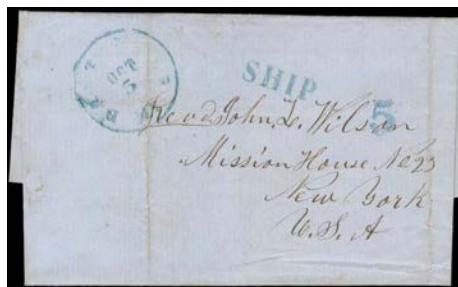 SHIP
OCT
5
5
Revd John L. Wilson
Mission House No 23
New York
U.S.A